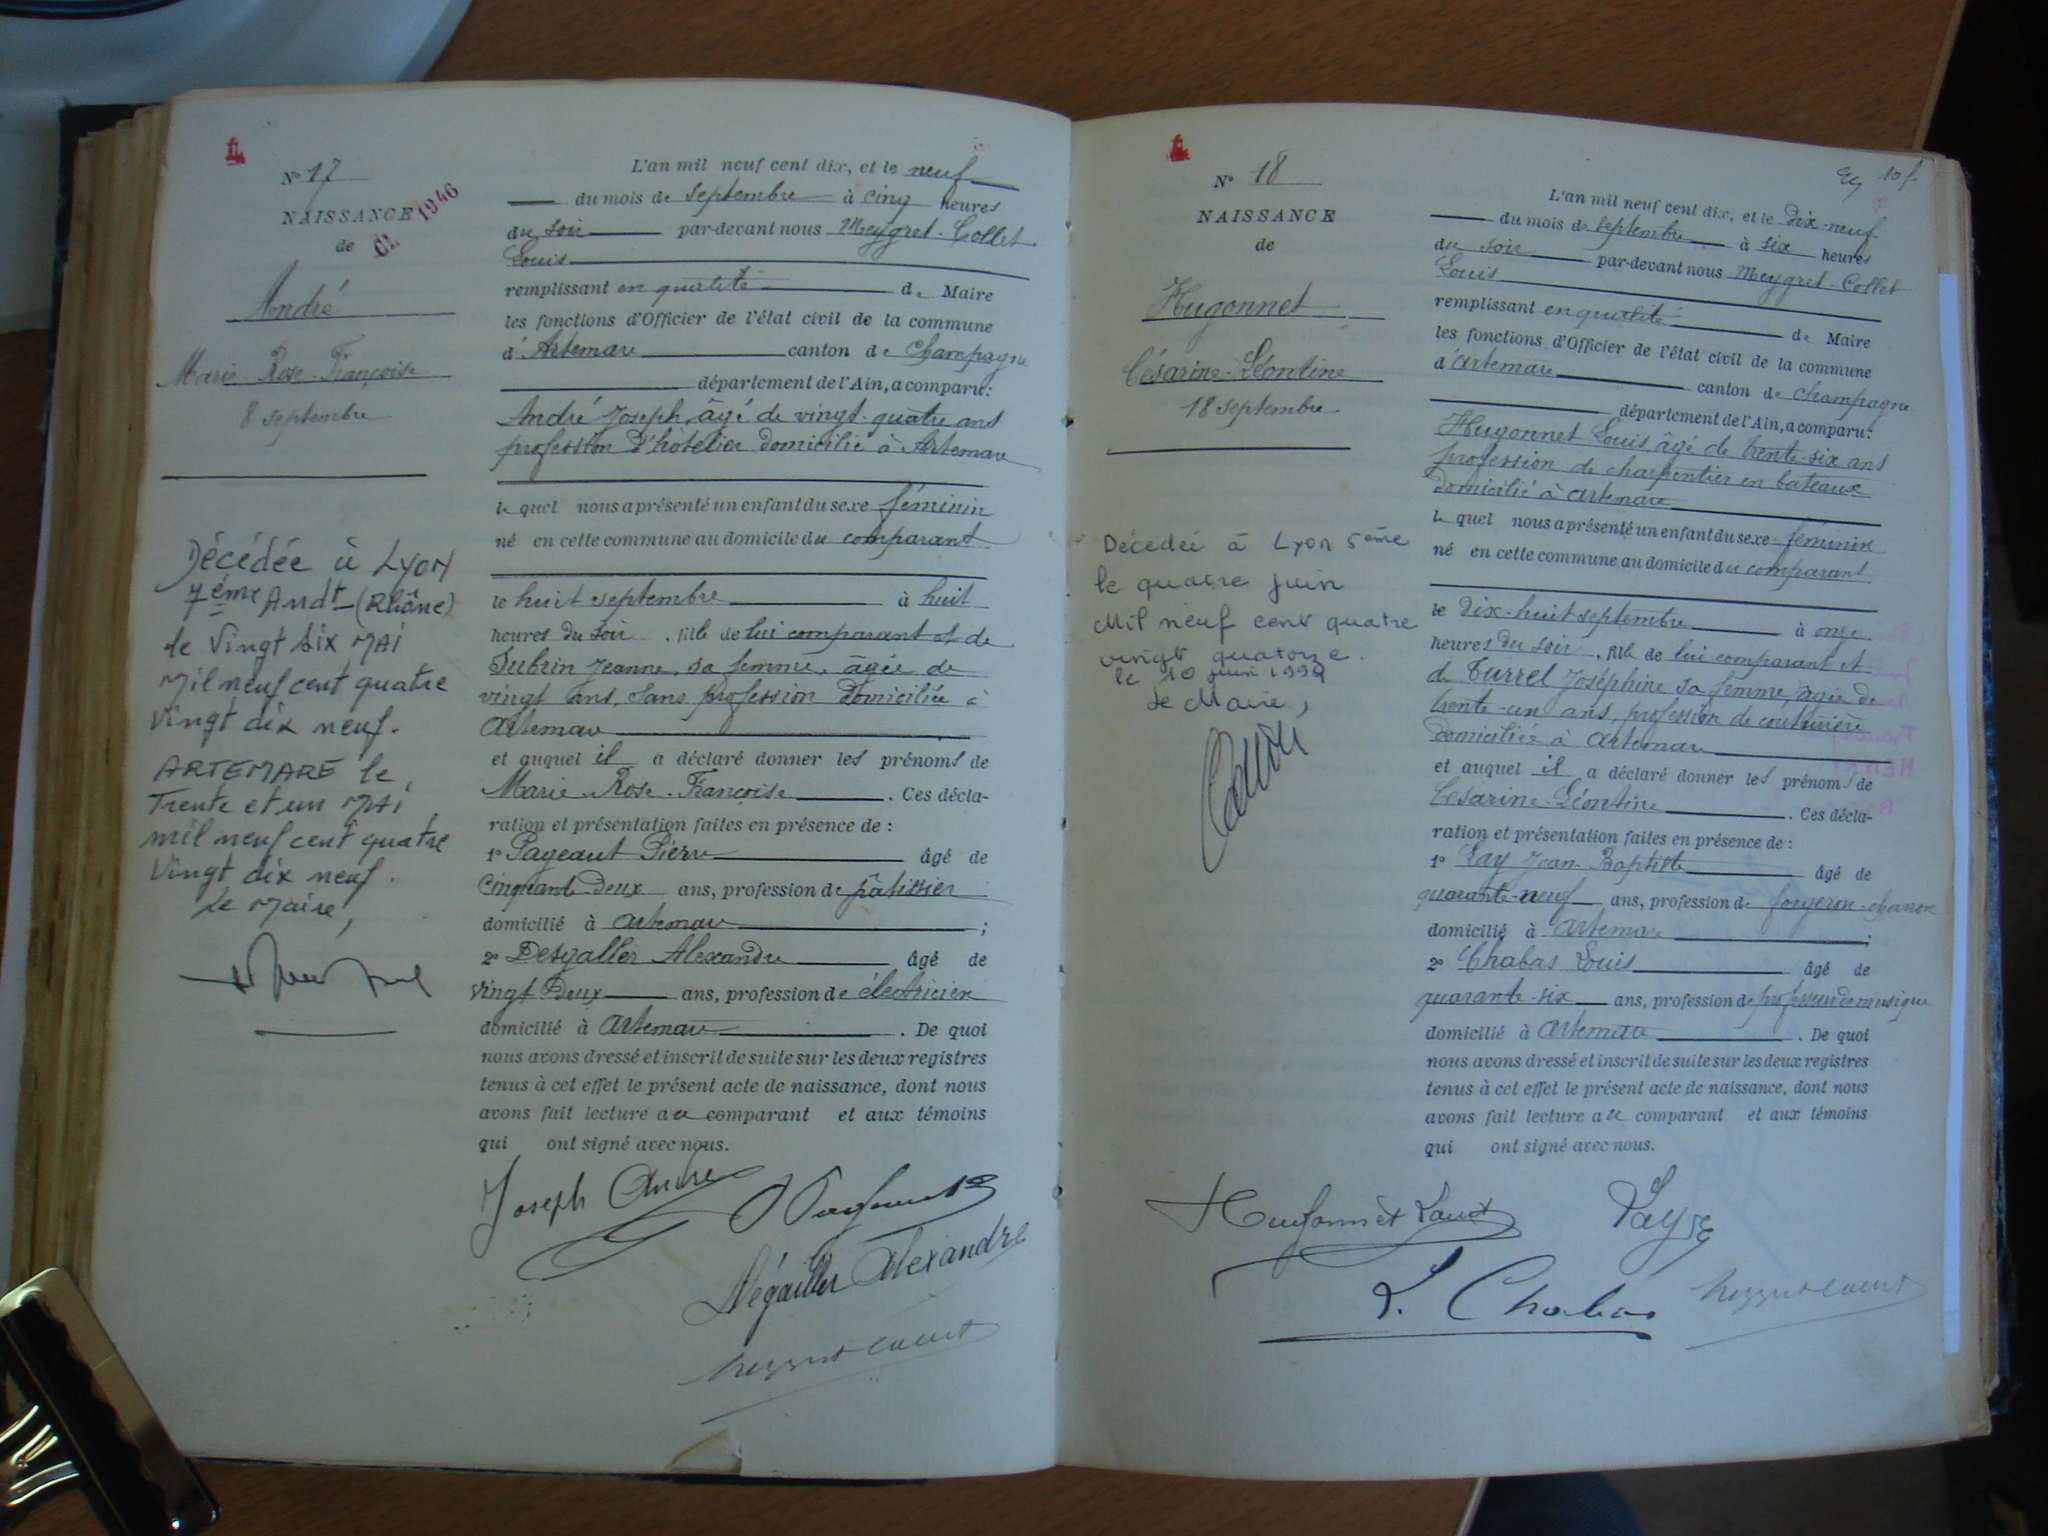 N° 17
NAISSANCE
de
CL 1946
André
Marie Rose Françoise
8 septembre
Décédée à LYON
Andt (Rhône)
le Vingt six MAI
Mil neuf cent quatre
Vingt dix neuf.
ARTEMARE le
Trente et un MAI
mil neuf cent quatre
Vingt dix neuf.
Le Maire,
L'an mil neuf cent dix, et le neuf
du mois de septembre à cinq heures
du soir par-devant nous Meygret-Collet
Louis
remplissant en qualité de Maire
les fonctions d'Officier de l'état civil de la commune
d'Artemare canton de Champagne
département de l'Ain, a comparu:
André Joseph, âgé de vingt-quatre ans
profession d'hôtelier domicilié à Artemare
le quel nous a présenté un enfant du sexe féminin
né en cette commune au domicile du comparant
le huit septembre à huit
heures du soir, fille de lui comparant et de
Jeanne, sa femme, âgée de
vingt ans, sans profession domiciliée à
Artemare
et auquel il a déclaré donner les prénoms de
Marie Rose Françoise. Ces décla-
ration et présentation faites en présence de :
1° Pageaut Pierre âgé de
cinquante deux ans, profession de pâtissier
domicilié à Artemare ;
2° Desgaller Alexandre âgé de
vingt deux ans, profession de électricien
domicilié à Artemare. De quoi
nous avons dressé et inscrit de suite sur les deux registres
tenus à cet effet le présent acte de naissance, dont nous
avons fait lecture au comparant et aux témoins
qui ont signé avec nous.
Joseph André
Dégailler Alexandre
10 f.
N° 18
NAISSANCE
de
Hugonnet
Césarine-Léontine
18 septembre
Décédée à Lyon 5ème
le quatre juin
Mil neuf cent quatre
vingt quatorze.
le 10 juin 1994
Le Maire,
L'an mil neuf cent dix, et le dix-neuf
du mois de septembre à six heures
du soir par-devant nous Meygret-Collet
Louis
remplissant en qualité de Maire
les fonctions d'Officier de l'état civil de la commune
d'Artemare canton de Champagne
département de l'Ain, a comparu:
Hugonnet Louis âgé de trente-six ans
profession de charpentier en bateaux
domicilié à Artemare
le quel nous a présenté un enfant du sexe féminin
né en cette commune au domicile du comparant
le dix-huit septembre à onze
heures du soir, fille de lui comparant et
de Turrel Joséphine sa femme, âgée de
trente-un ans, profession de couturière
domiciliée à Artemare
et auquel il a déclaré donner les prénoms de
Césarine-Léontine. Ces décla-
ration et présentation faites en présence de :
1° Lay Jean-Baptiste âgé de
quarante-neuf ans, profession de forgeron-charron
domicilié à Artemare ;
2° Chabas Louis âgé de
quarante-six ans, profession de professeur de musique
domicilié à Artemare. De quoi
nous avons dressé et inscrit de suite sur les deux registres
tenus à cet effet le présent acte de naissance, dont nous
avons fait lecture au comparant et aux témoins
qui ont signé avec nous.
Hugonnet Louis
L. Chabas